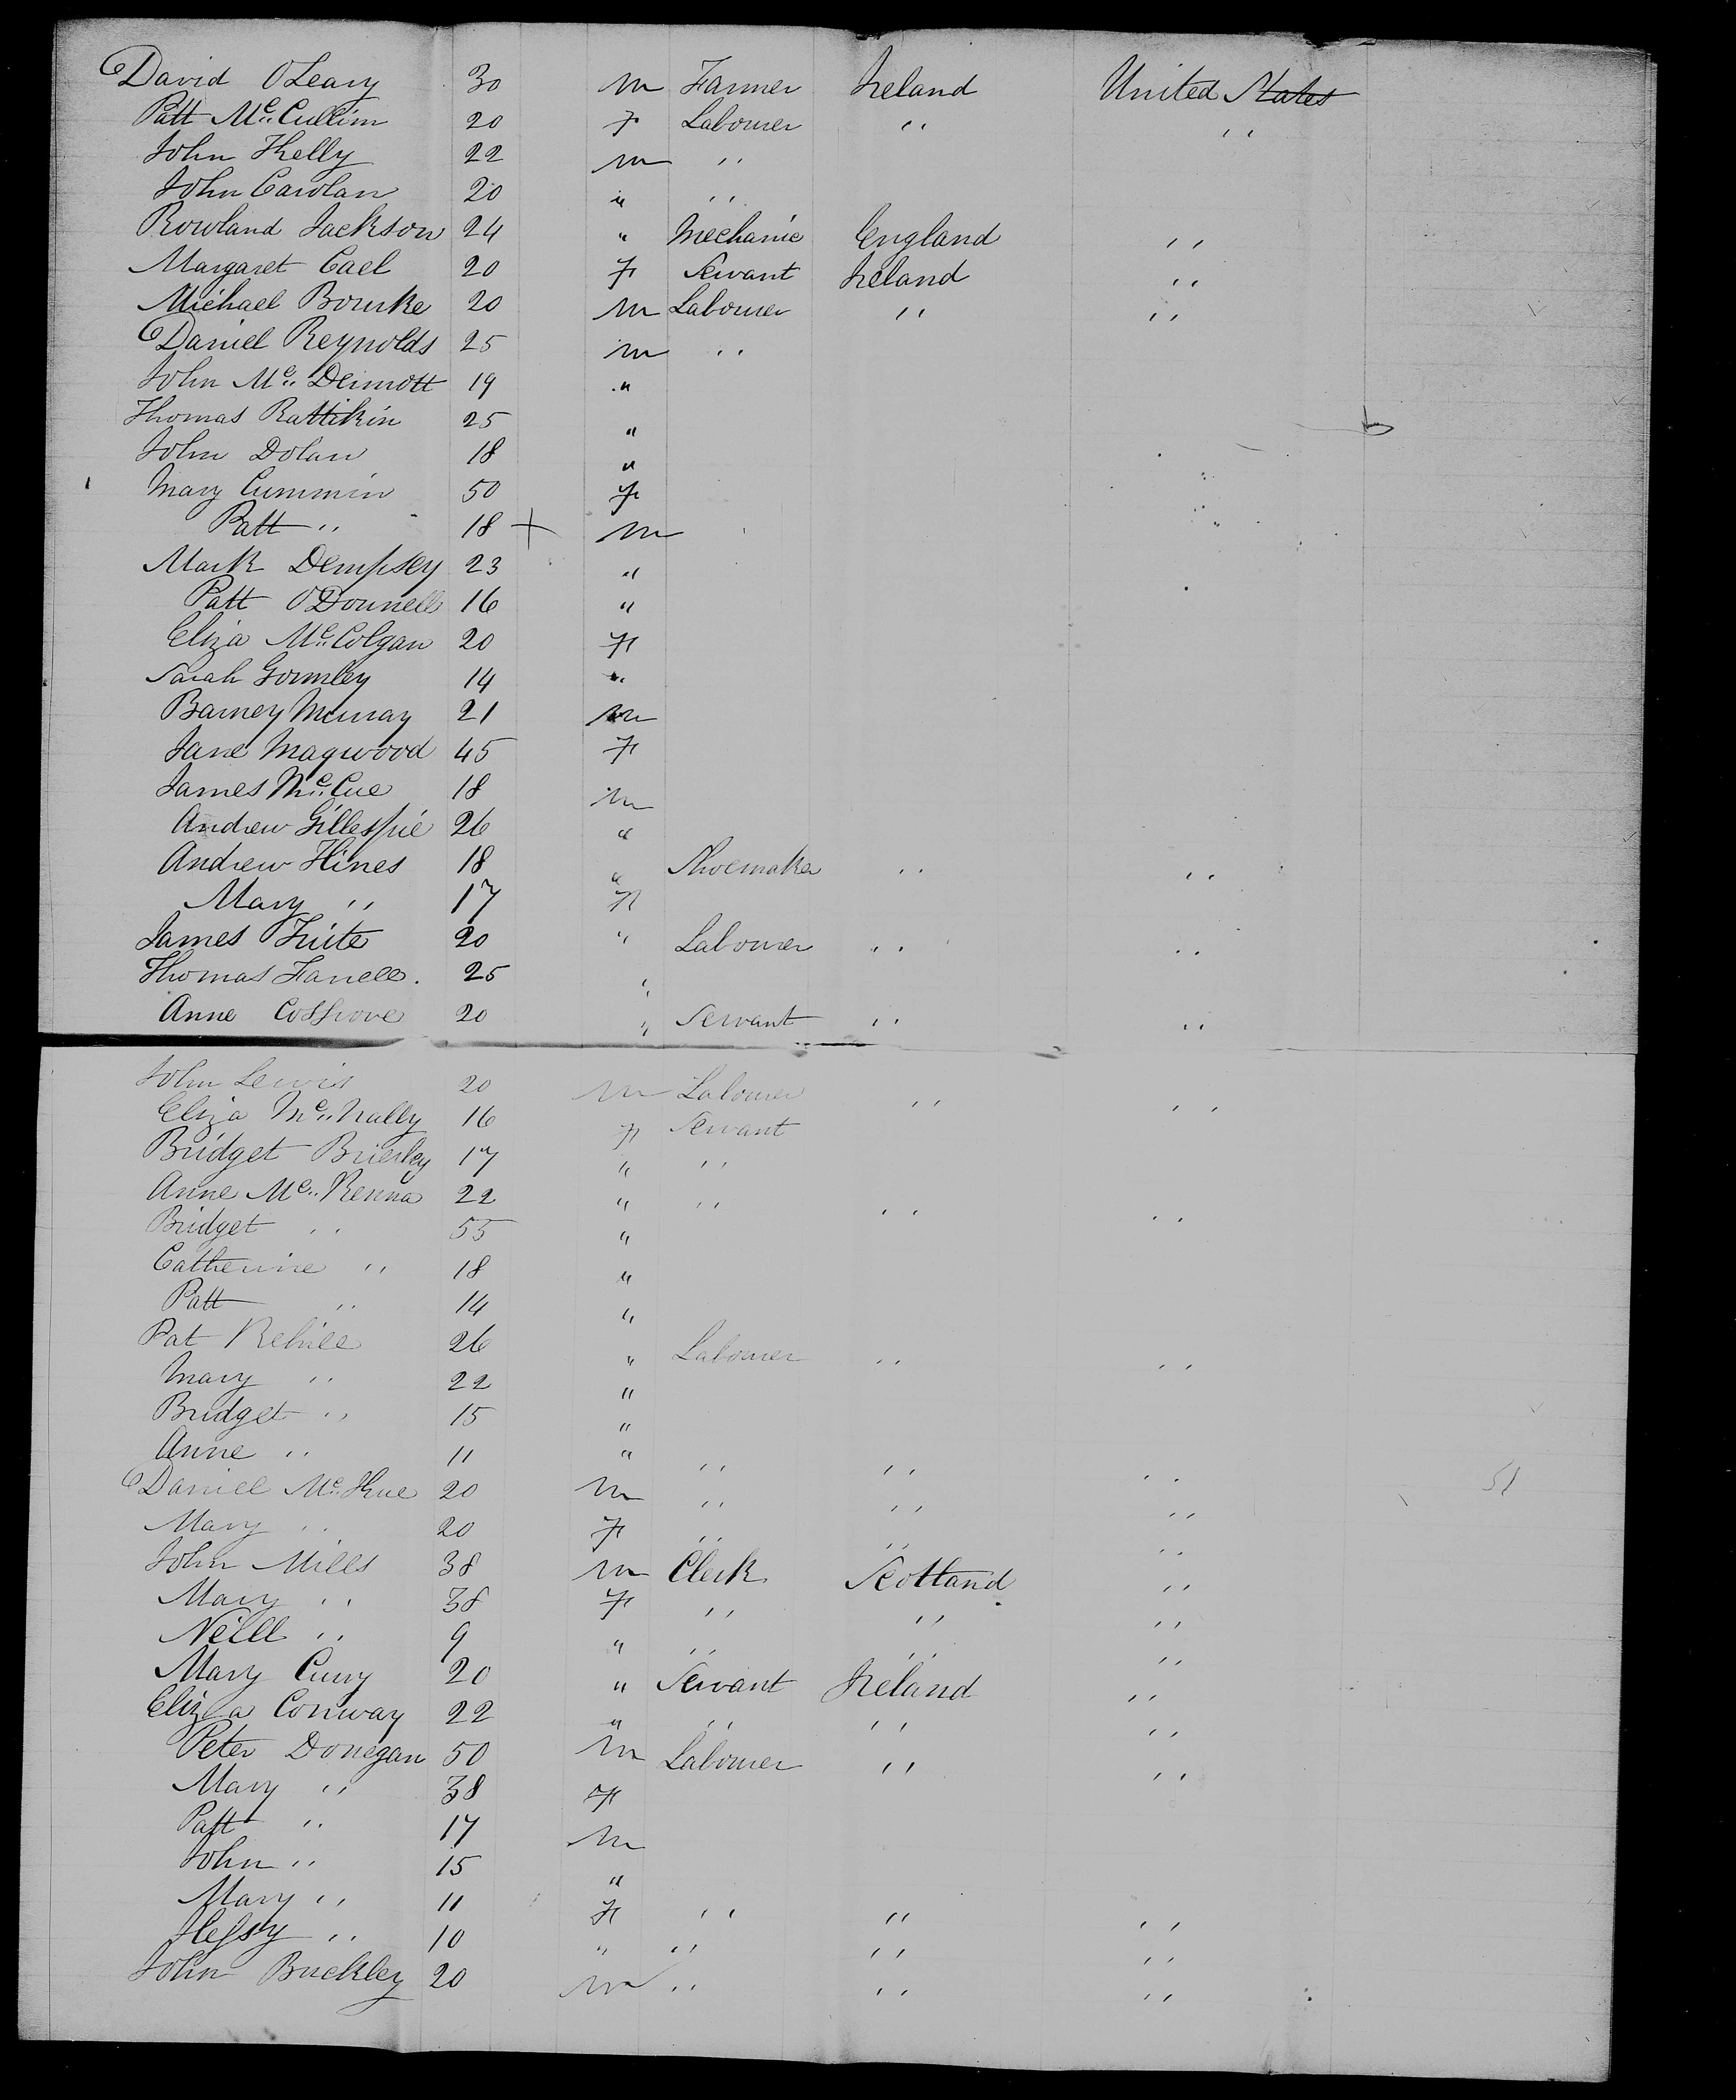 David O'Leary 30 m Farmer Ireland United States
Patt Mc Cullim 20 F Labourer " "
John Kelly 22 m "
John Carolan 20 " "
Rowland Jackson 24 " Mechanic England "
Margaret Cael 20 F Servant Ireland "
Michael Bourke 20 m Labourer " "
Daniel Reynolds 25 m "
John Mc Dermott 19 "
Thomas Rattikin 25 "
John Dolan 18 "
Mary Cummin 50 F
Patt " 18 + m
Mark Dempsey 23 "
Patt O'Donnell 16 "
Eliza Mc Colgan 20 F
Sarah Gormley 14 "
Barney Murray 21 m
Jane Magwood 45 F
James Mc Cue 18 m
Andrew Gillespie 26 "
Andrew Hines 18 " Shoemaker " "
Mary " 17 F
James Tuite 20 " Labourer " "
Thomas Farrell. 25 "
Anne Cosgrove 20 " Servant " "
John Lewis 20 m Labourer " "
Eliza Mc Nally 16 F Servant
Bridget Brierley 17 " "
Anne Mc Kenna 22 " " " "
Bridget " 55 "
Catherine " 18 "
Patt " 14 "
Pat Rehill 26 " Labourer " "
Mary " 22 "
Bridget " 15 "
Anne " 11 " " " "
Daniel Mc Hue 20 m " " " 51
Mary " 20 F " " "
John Mills 38 m Clerk Scotland "
Mary " 38 F " " "
Neill " 9 " " " "
Mary Curry 20 " Servant Ireland "
Eliza Conway 22 " " " "
Peter Donegan 50 m Labourer " "
Mary " 38 F
Patt " 17 m
John " 15 "
Mary " 11 F " " "
Hessy " 10 " " " "
John Buckley 20 m " " "